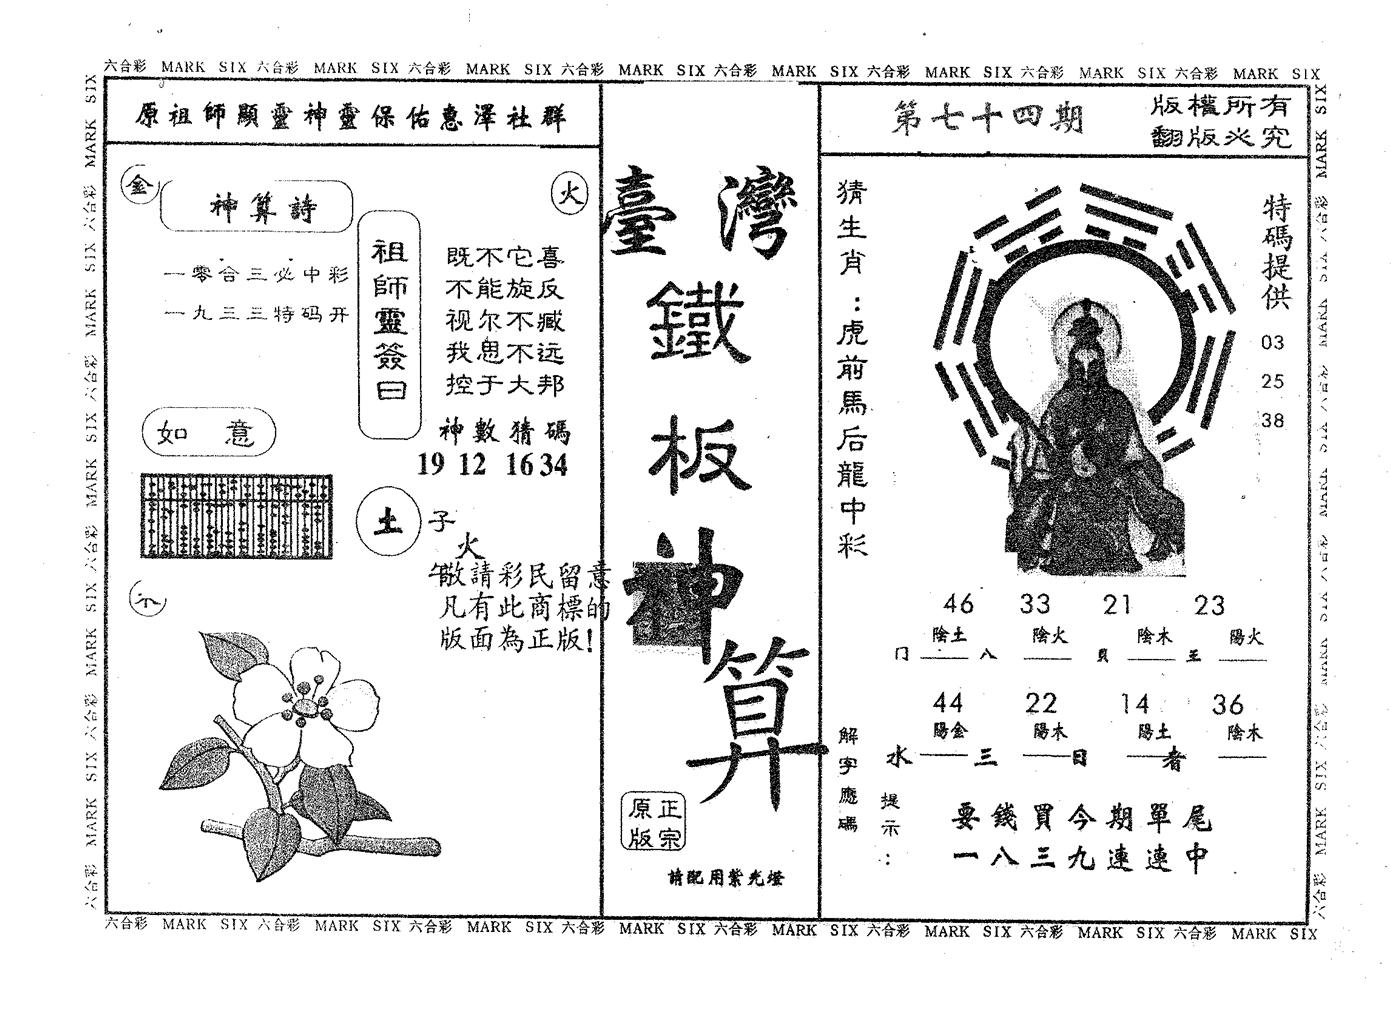 六合彩 MARK SIX 六合彩 MARK SIX 六合彩 MARK SIX 六合彩 MARK SIX 六合彩 MARK SIX 六合彩 MARK SIX 六合彩 MARK SIX 六合彩 MARK SIX
原祖師顯靈神靈保佑惠澤社群
金
神算詩
火
一零合三必中彩
一九三三特码开
祖師靈簽曰
既不它喜
不能旋反
视尔不臧
我思不远
控于大邦
神數猜碼
19 12 16 34
如 意
土
子
火
午
敬請彩民留意
凡有此商標的
版面為正版!
臺灣
鐵
板
神
算
正宗
原版
請配用紫光燈
第七十四期
版權所有
翻版必究
猜生肖:虎前馬后龍中彩
特碼提供
03
25
38
46 33 21 23
陰土 陰火 陰木 陽火
门 八 貝 王
44 22 14 36
陽金 陽木 陽土 陰木
水 三 日 者
解字應碼
提示:
要錢買今期單尾
一八三九連連中
六合彩 MARK SIX 六合彩 MARK SIX 六合彩 MARK SIX 六合彩 MARK SIX 六合彩 MARK SIX 六合彩 MARK SIX 六合彩 MARK SIX 六合彩 MARK SIX